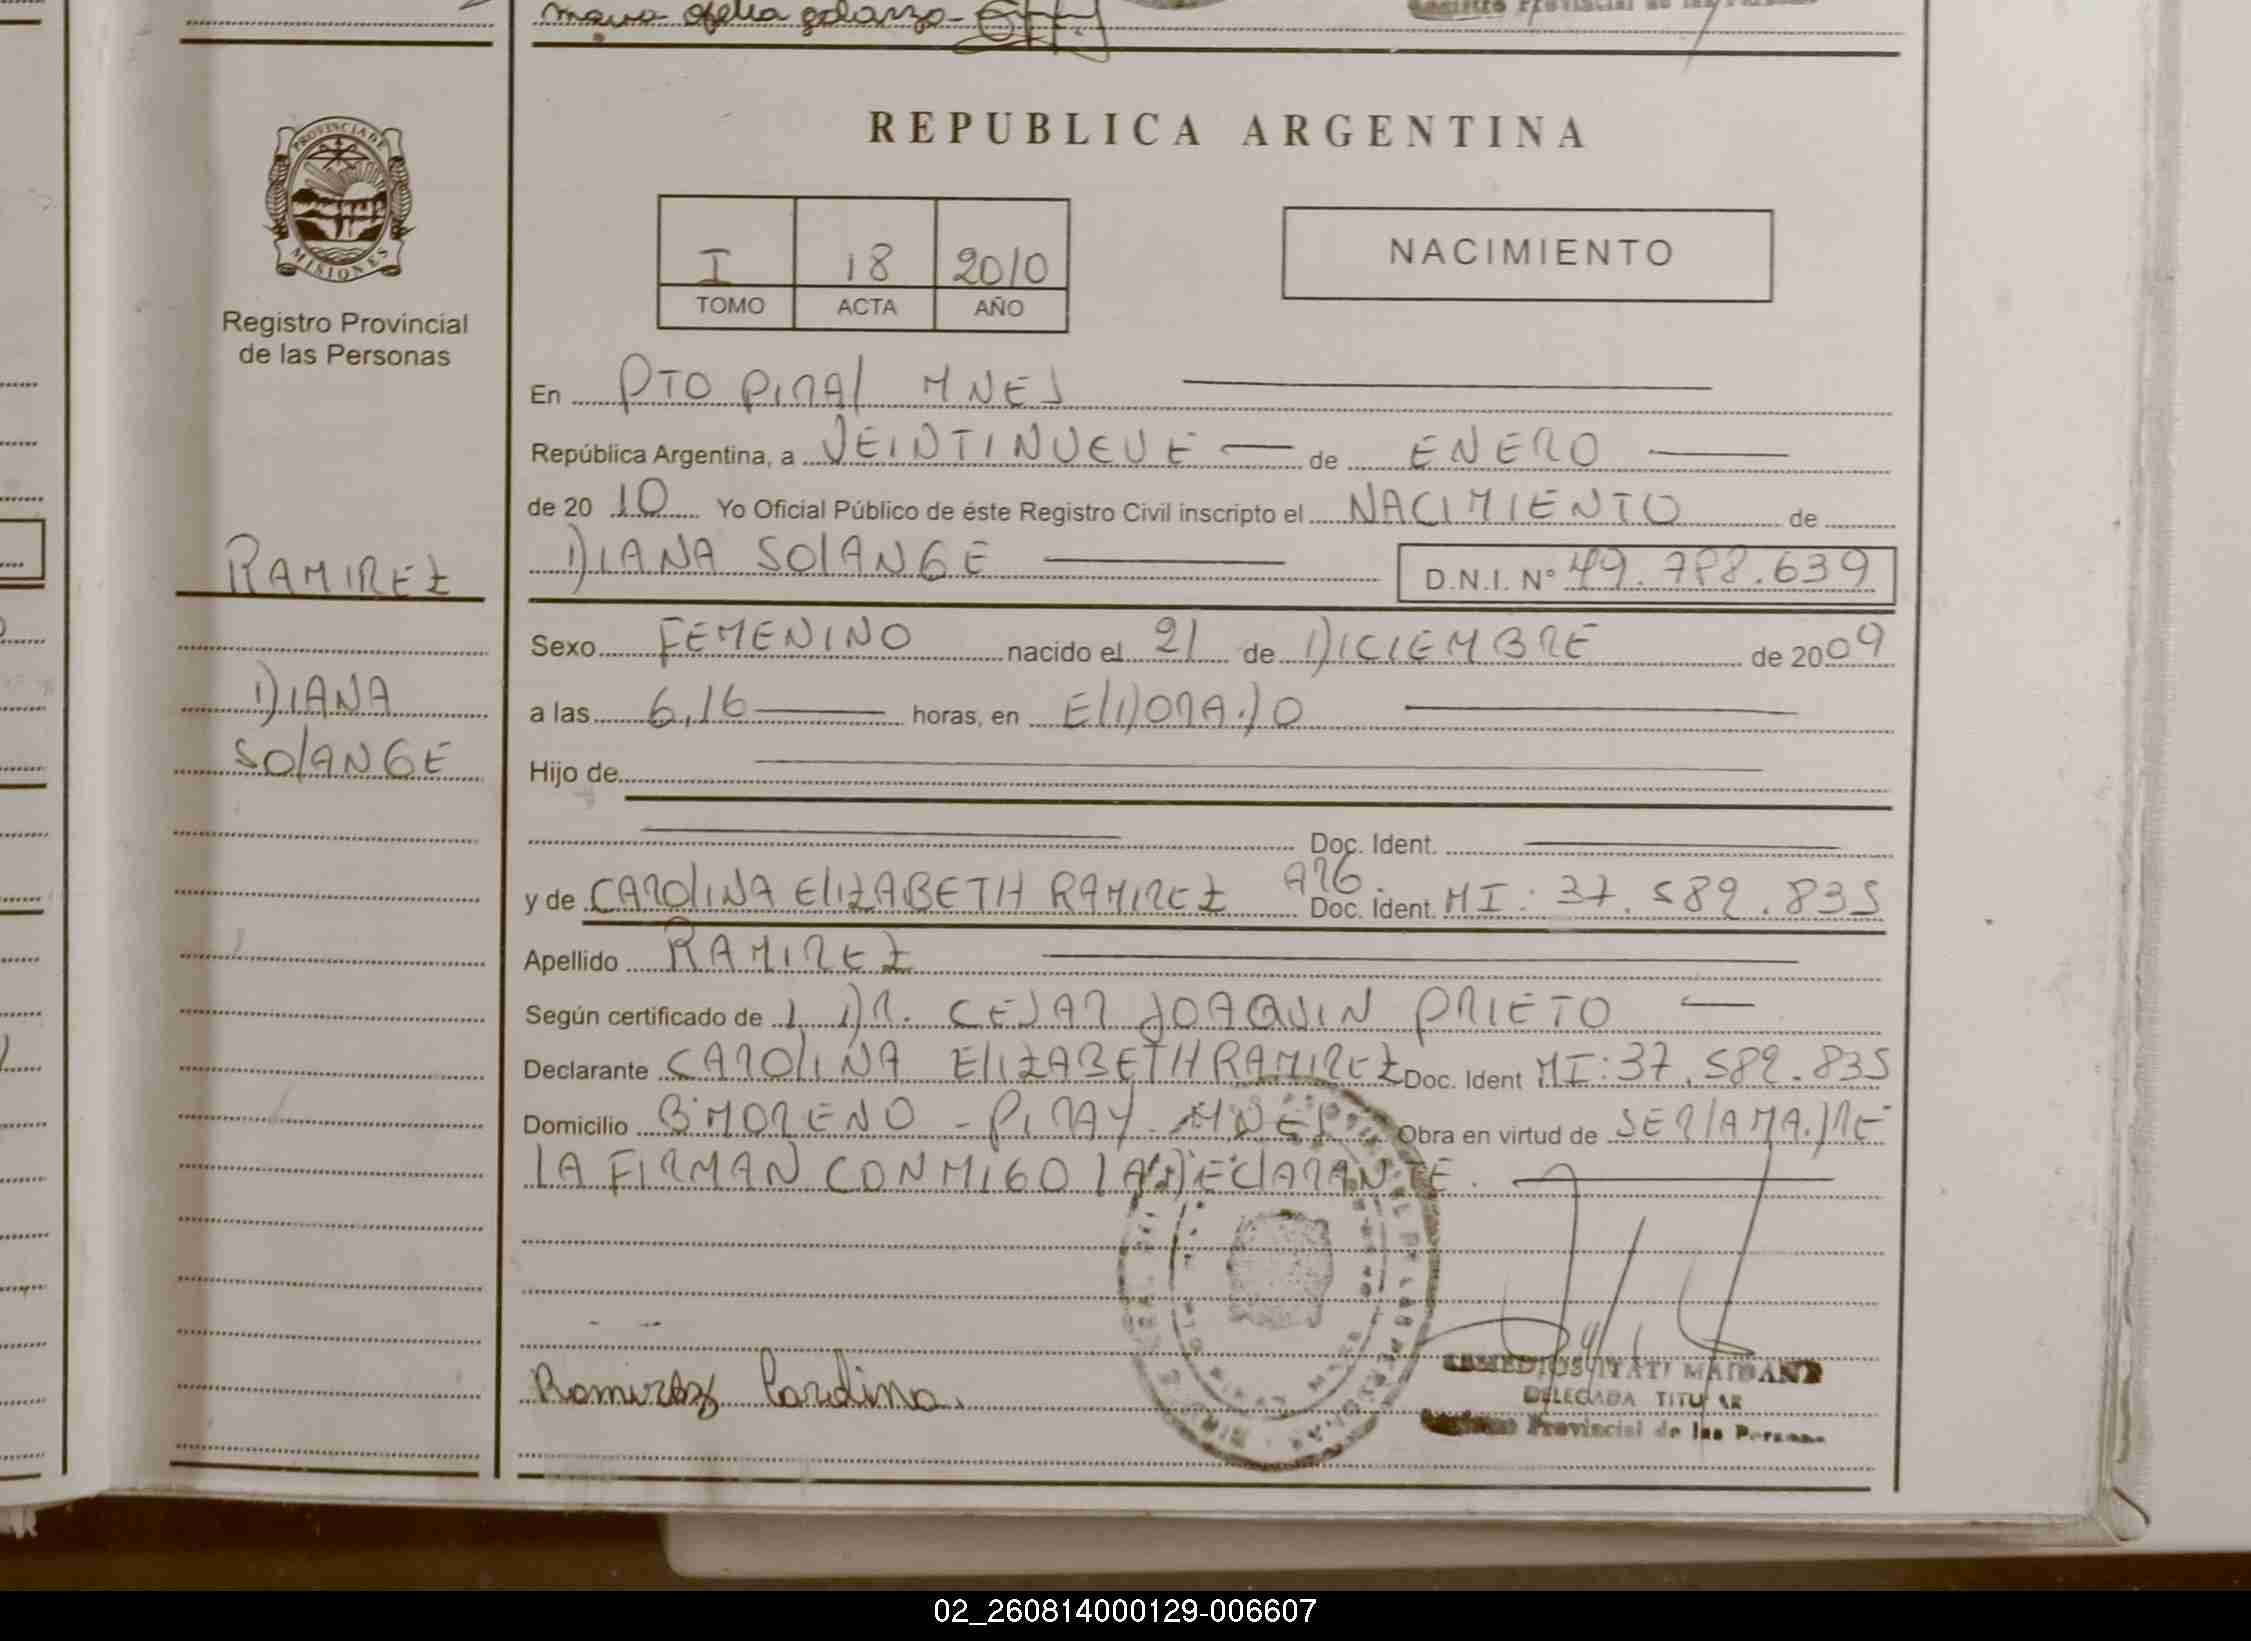 maria ofelia galarza
Registro Provincial de las Personas
PROVINCIA DE
MISIONES
Registro Provincial
de las Personas
REPUBLICA ARGENTINA
I 18 2010
TOMO ACTA AÑO
NACIMIENTO
En PTO PIRAY MNES
República Argentina, a VEINTINUEVE de ENERO
de 20 10 Yo Oficial Público de éste Registro Civil inscripto el NACIMIENTO de
DIANA SOLANGE D.N.I. Nº 49.788.639
RAMIREZ
DIANA
SOLANGE
Sexo FEMENINO nacido el 21 de DICIEMBRE de 2009
a las 6,16 horas, en ELDORADO
Hijo de
Doc. Ident.
y de CAROLINA ELIZABETH RAMIREZ ARG. Doc. Ident. MI: 37.582.835
Apellido RAMIREZ
Según certificado de L DR. CESAR JOAQUIN PRIETO
Declarante CAROLINA ELIZABETH RAMIREZ Doc. Ident MI: 37.582.835
Domicilio Bº MORENO - PIRAY - MNES Obra en virtud de SER LA MADRE
LA FIRMAN CONMIGO LA DECLARANTE.
Ramirez Carolina.
REMEDIOS ITATI MAIDANA
DELEGADA TITULAR
Registro Provincial de las Personas
02_260814000129-006607